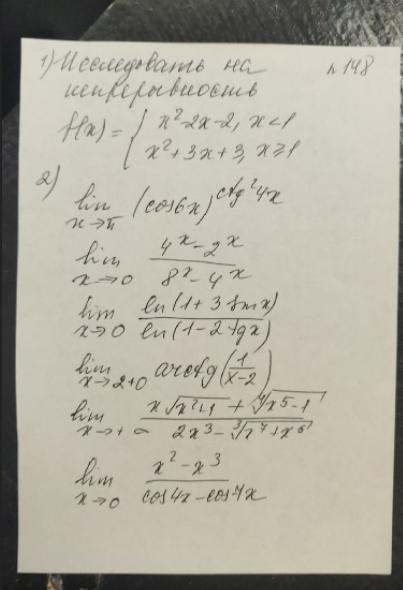 1) Исследовать на n 148
непрерывность
f(x) = { x²-2x-2, x<1
x²+3x+3, x⩾1
2)
lim x→π (cos6x)^(ctg²4x)
lim x→0 (4^x - 2^x)/(8^x - 4^x)
lim x→0 ln(1+3sinx)/ln(1-2tgx)
lim x→2+0 arctg(1/(x-2))
lim x→+∞ (x√(x²+1) + ∜(x⁵-1))/(2x³ - ∛(x⁷+x⁵))
lim x→0 (x²-x³)/(cos4x-cos7x)